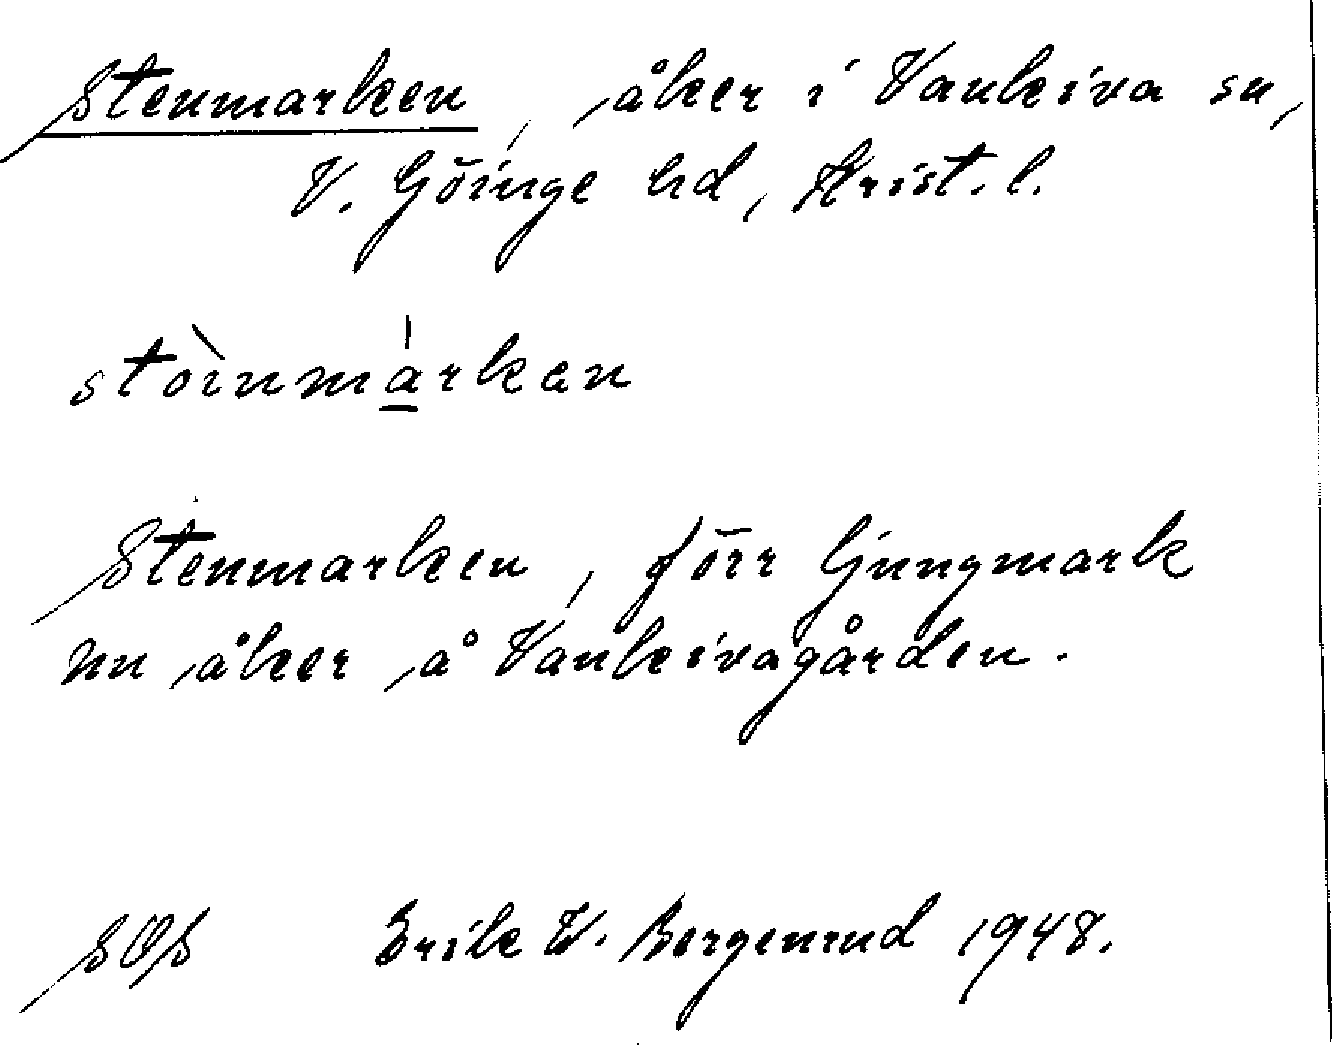 Stenmarken, åker i Vankiva sn,
V. Göinge hd, Krist. l.
stòinmárkan
Stenmarken, förr ljungmark
nu åker å Vankivagården.
SOS Erik W. Borgenrud 1948.